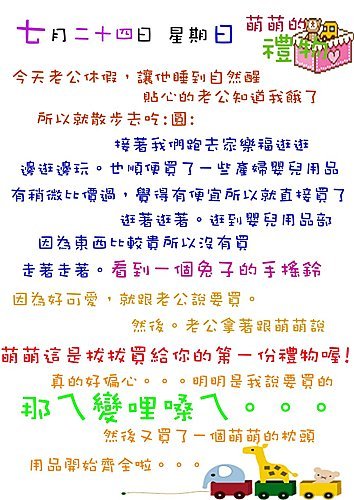 七月二十四日 星期日
萌萌的
禮物
今天老公休假，讓他睡到自然醒
貼心的老公知道我餓了
所以就散步去吃:圓:
接著我們跑去家樂福逛逛
邊逛邊玩。也順便買了一些產婦嬰兒用品
有稍微比價過，覺得有便宜所以就直接買了
逛著逛著。逛到嬰兒用品部
因為東西比較貴所以沒有買
走著走著。看到一個兔子的手搖鈴
因為好可愛，就跟老公說要買。
然後。老公拿著跟萌萌說
萌萌這是拔拔買給你的第一份禮物喔!
真的好偏心。。。明明是我說要買的
那ㄟ變哩嗓ㄟ。。。
然後又買了一個萌萌的枕頭
用品開始齊全啦。。。